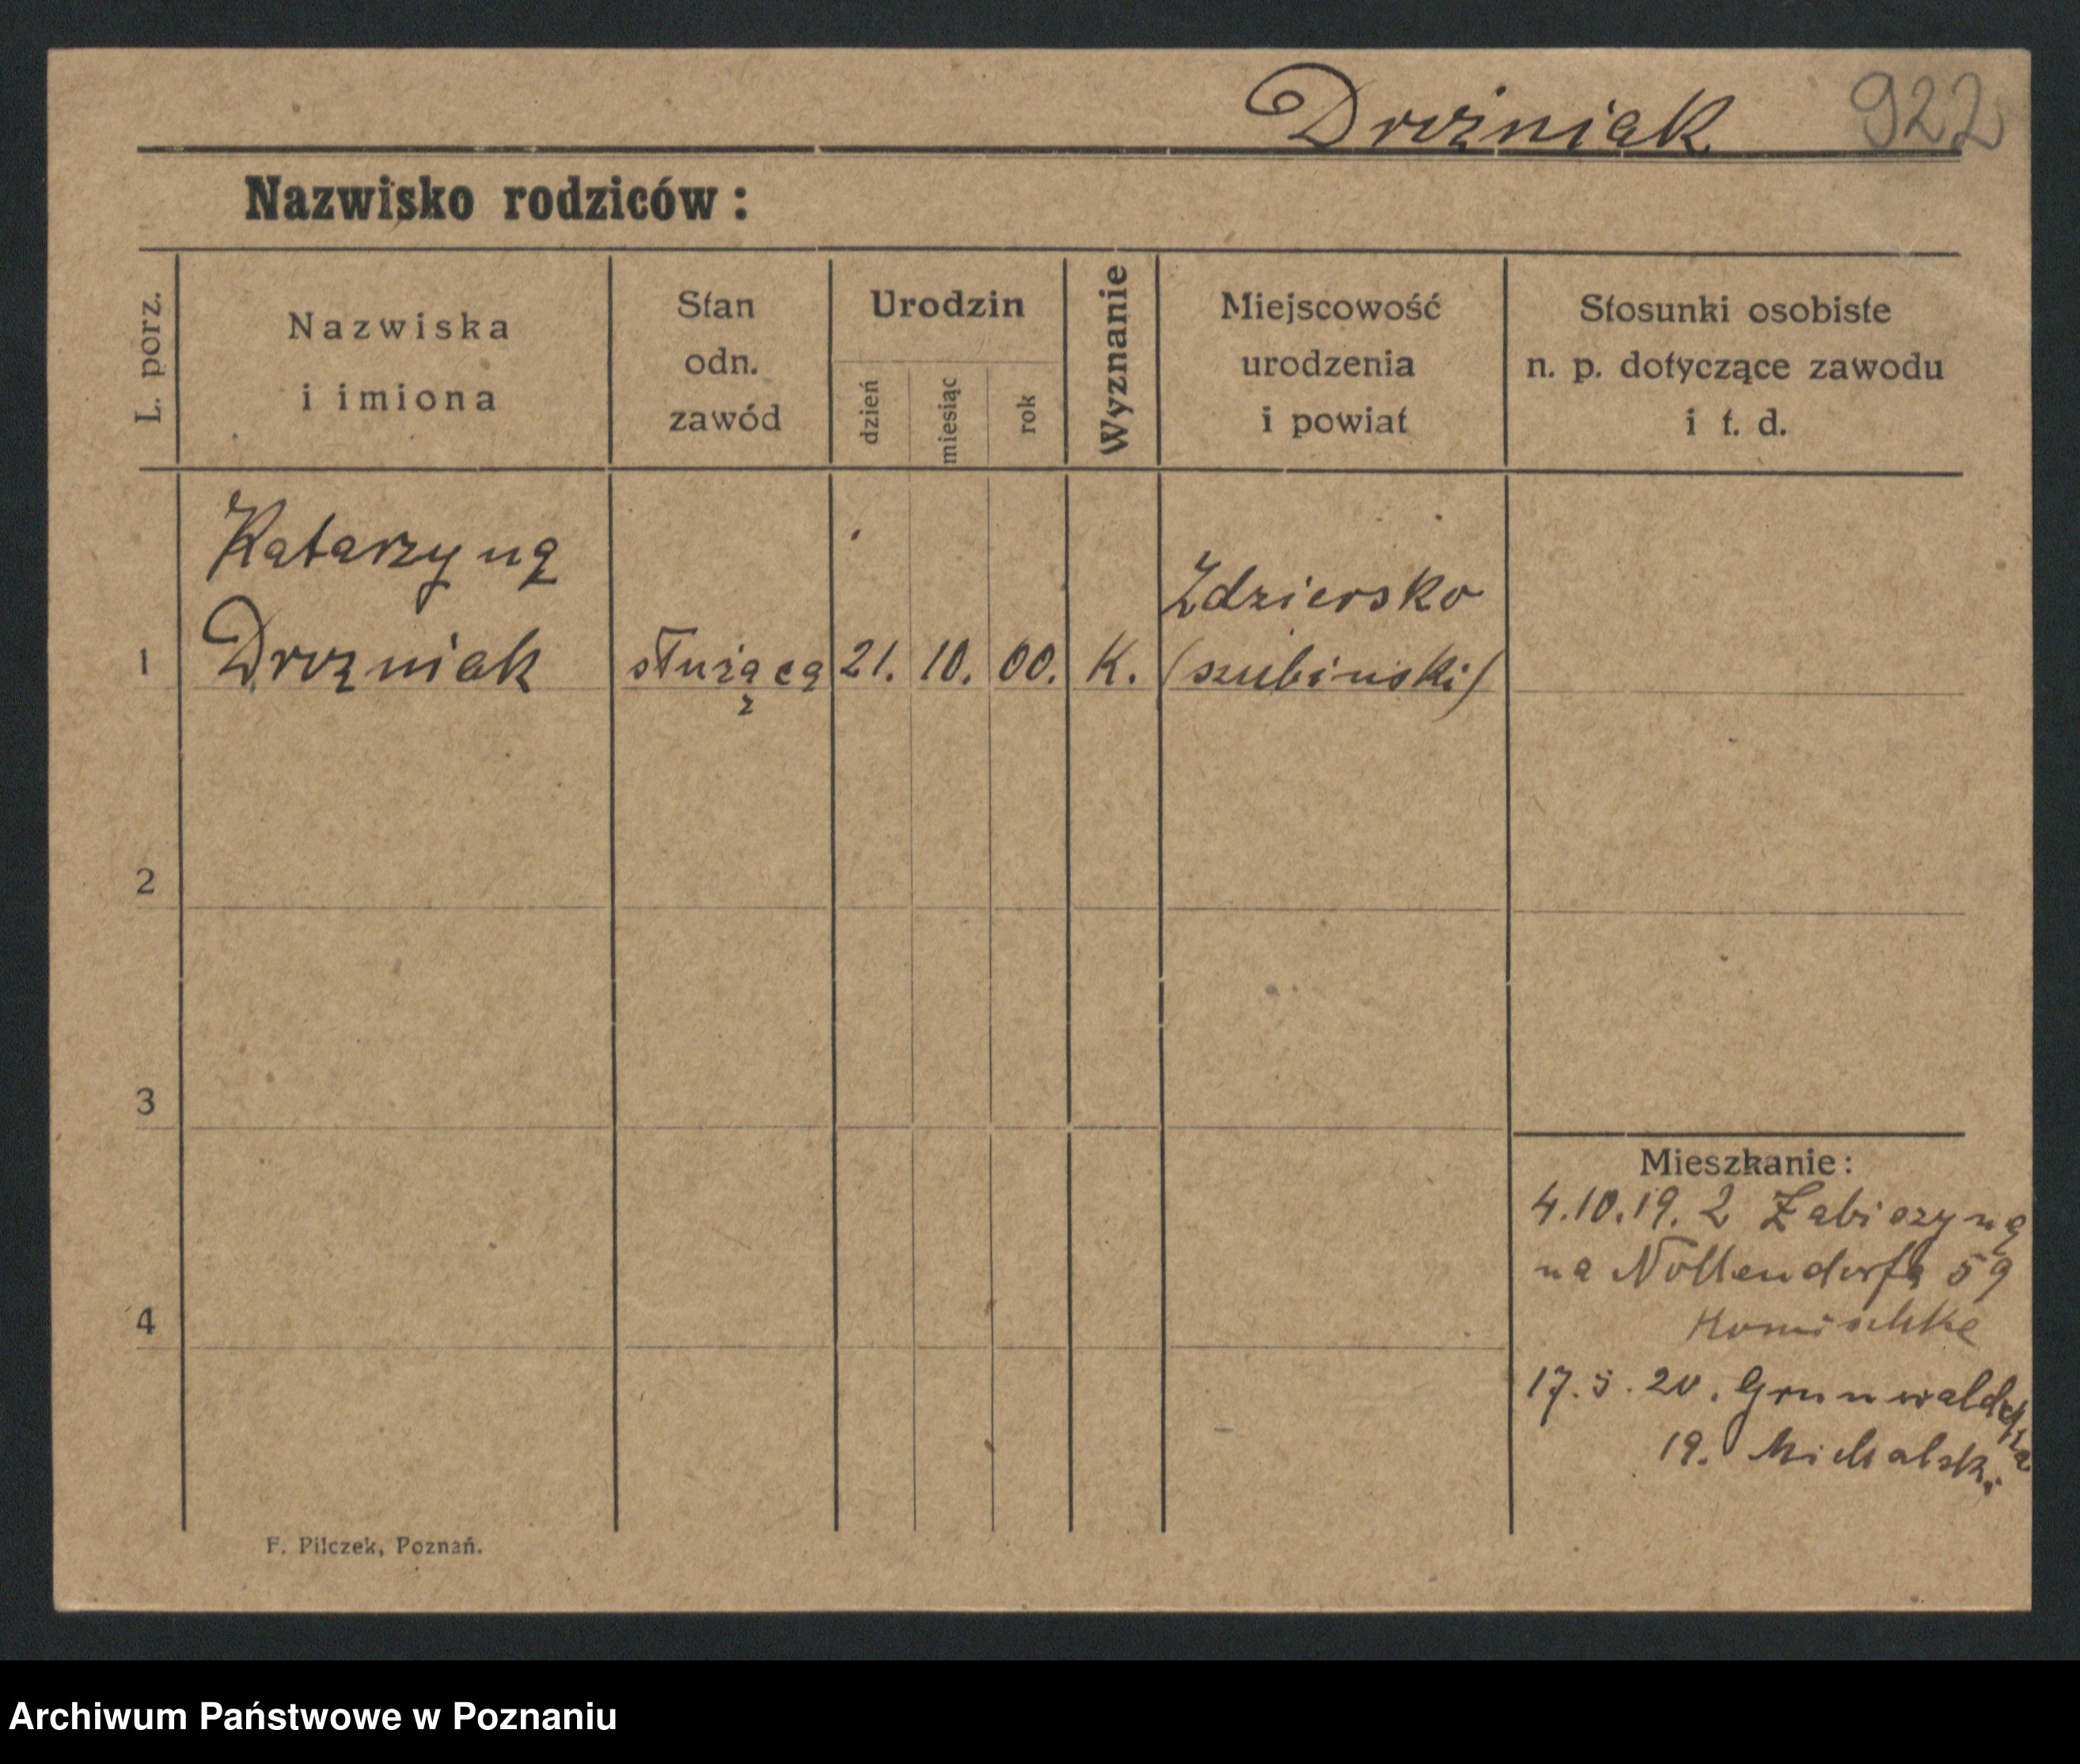 Drożniak 922
Nazwisko rodziców:
L. porz.
Nazwiska
i imiona
Stan
odn.
zawód
Urodzin
dzień
miesiąc
rok
Wyznanie
Miejscowość
urodzenia
i powiat
Stosunki osobiste
n. p. dotyczące zawodu
i t. d.
Katarzyna
Zdziersko
1 Drożniak służąca 21. 10. 00. K. (szubiński)
2
3
4
Mieszkanie:
4.10.19. z Żabiczyna
na Nollendorfa 59
17.5.20. Grunwaldzka
19. Michalski
F. Pilczek, Poznań.
Archiwum Państwowe w Poznaniu